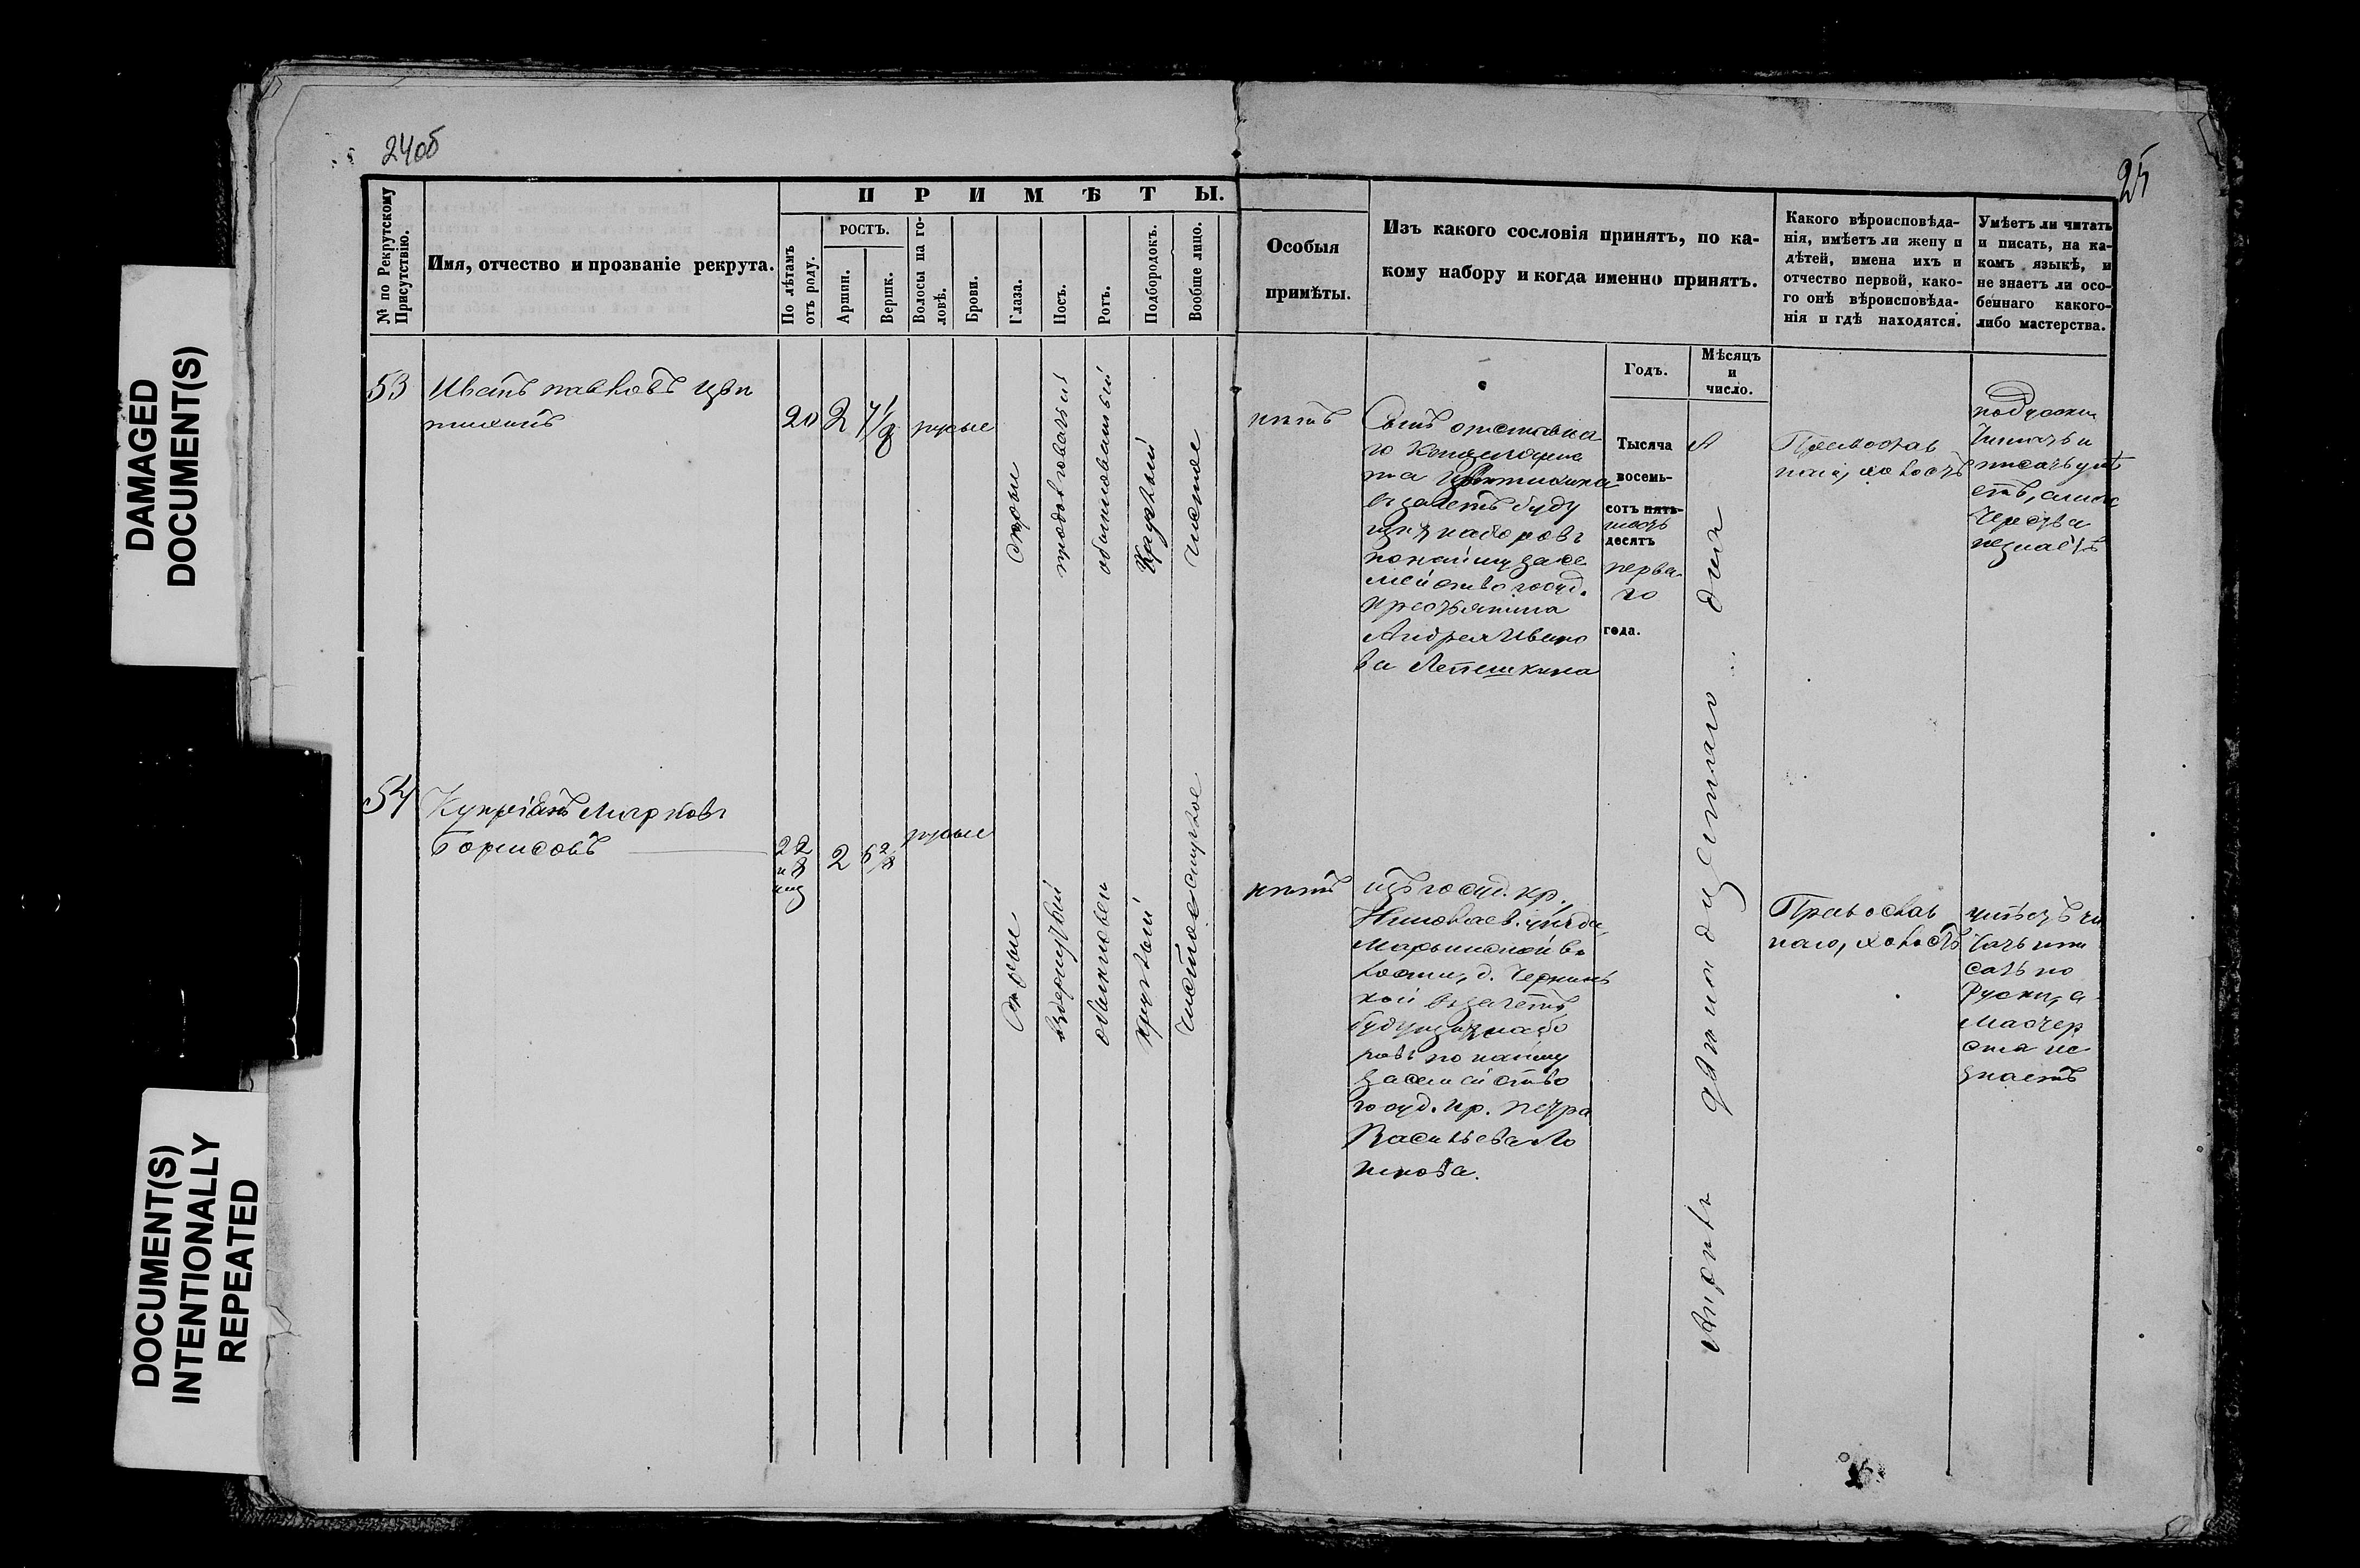 24об
25
DAMAGED
DOCUMENT(S)
DOCUMENT(S)
INTENTIONALLY
REPEATED
№ по Рекрутскому
Присутствію.
Имя, отчество и прозваніе рекрута.
ПРИМѢТЫ.
По лѣтамъ
отъ роду.
РОСТЪ.
Аршин.
Вершк.
Волосы на го-
ловѣ.
Брови.
Глаза.
Носъ.
Ротъ.
Подбородокъ.
Вообще лицо.
Особыя
примѣты.
Изъ какого сословія принятъ, по ка-
кому набору и когда именно принятъ.
Годъ.
Мѣсяцъ
и
число.
Какого вѣроисповѣда-
нія, имѣетъ ли жену и
дѣтей, имена ихъ и
отчество первой, како-
го онѣ вѣроисповѣда-
нія и гдѣ находятся.
Умѣетъ ли читать
и писать, на ка-
комъ языкѣ, и
не знаетъ ли осо-
беннаго какого-
либо мастерства.
53
Иванъ
20
2
7 1/8
русые
сѣрые
обыкновенный
круглый
чистое
нѣтъ
Сынъ отставна
го
въ зачетъ буду
щихъ наборовъ
по найму за се
мейство госуд.
крестьянина
Андрея Ивано
ва Лепешкина
Тысяча
восемь-
сотъ пять-
десятъ
перва
го
года.
Апрѣля двѣнадцатаго дня
Православ
наго, холостъ
порусски
читать и
писать умѣ
етъ, а мас
терства
незнаетъ
54
Купріянъ Марковъ
Борисовъ
22
и 8
2
6 2/8
русые
сѣрые
вздернутый
обыкновен
круглый
чистое смуглое
нѣтъ
изъ госуд. кр.
Николаев. уѣзда,
Марьинской во
лости, д.
въ зачетъ
будущихъ набо
ровъ по найму
за семейство
госуд. кр. Петра
Васильева Ло
Православ
наго, холостъ
умѣетъ чи
тать и пи
сать по
Руски, а
мастер
ства не
знаетъ